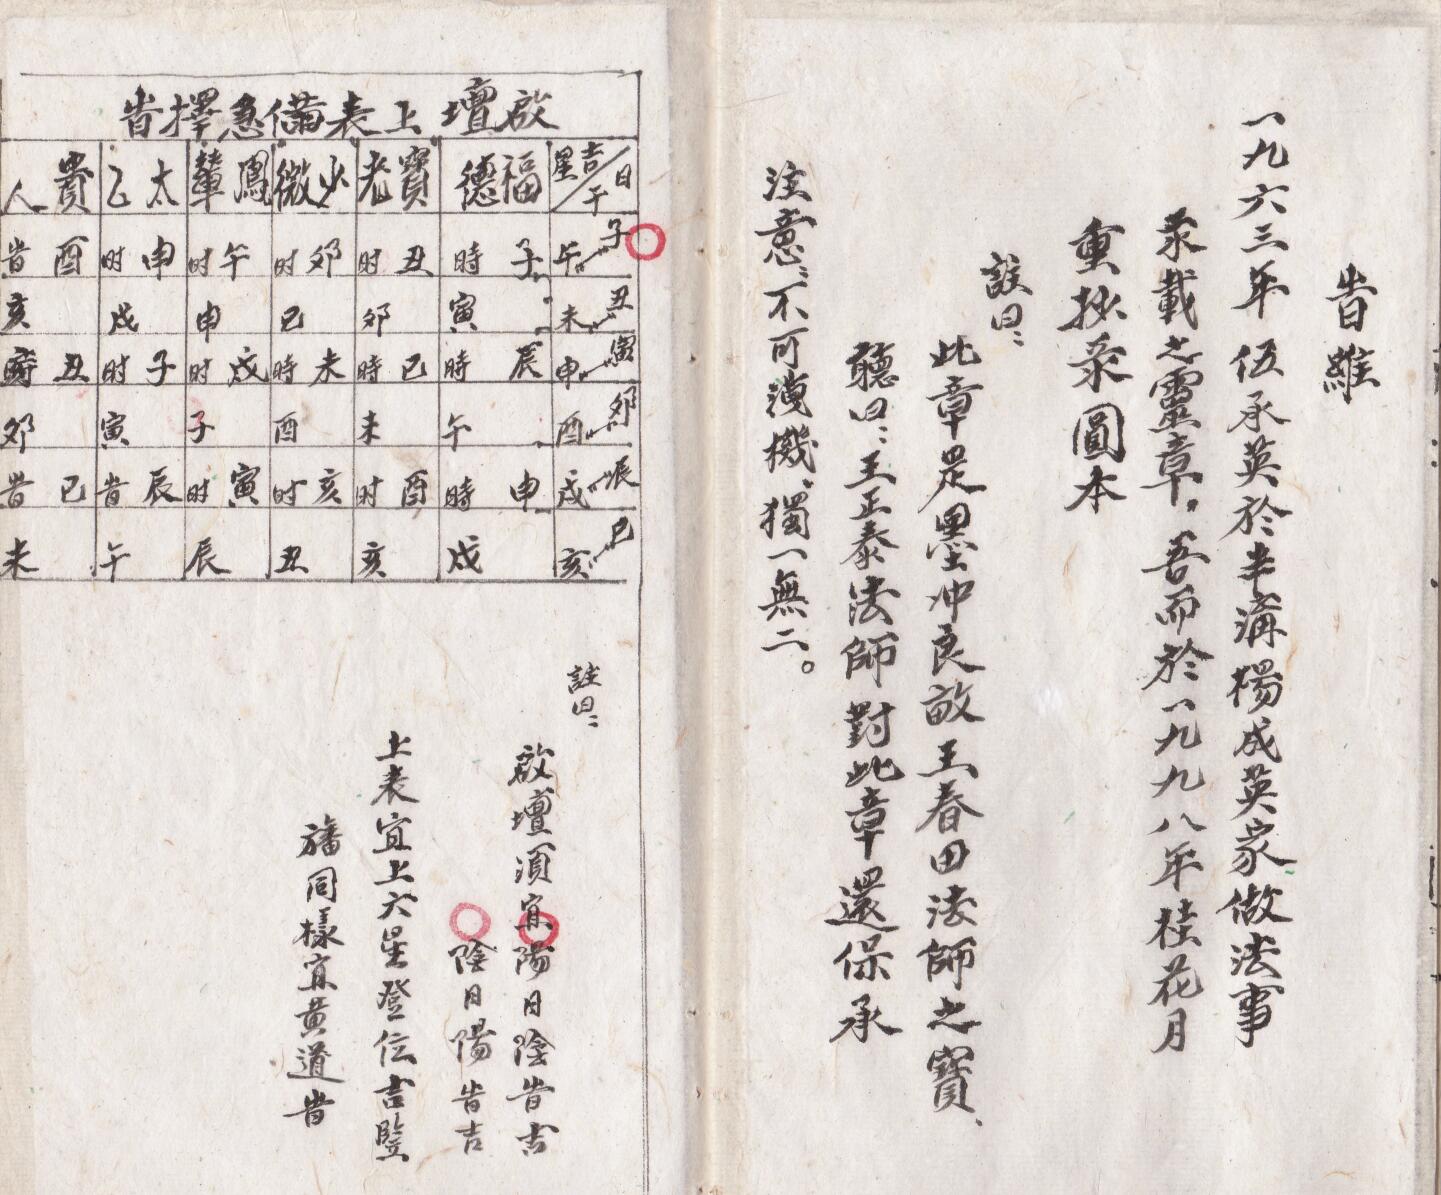 旹維
一九六三年伍承英於半溝楊成英家做法事
彔載之靈章，吾而於一九九八年桂花月
重抄彔圓本
註曰：
此章是墨沖良畝王春田法師之寶、
聽曰：王正泰法師對此章還保承
注意：不可洩機、獨一無二。
啟壇上表備急擇旹
日 吉星 子午 丑未 寅申 卯酉 辰戌 巳亥
福德 子時 寅 辰時 午 申時 戌
寶老 丑时 卯 巳時 未 酉时 亥
少微 卯时 巳 未時 酉 亥时 丑
鳳輦 午时 申 戌时 子 寅时 辰
太乙 申时 戌 子时 寅 辰旹 午
貴人 酉旹 亥 丑時 卯 巳旹 未
註曰：
啟壇須宜陽日陰旹吉
陰日陽旹吉
上表宜上六星登位吉
旛同樣宜黄道旹